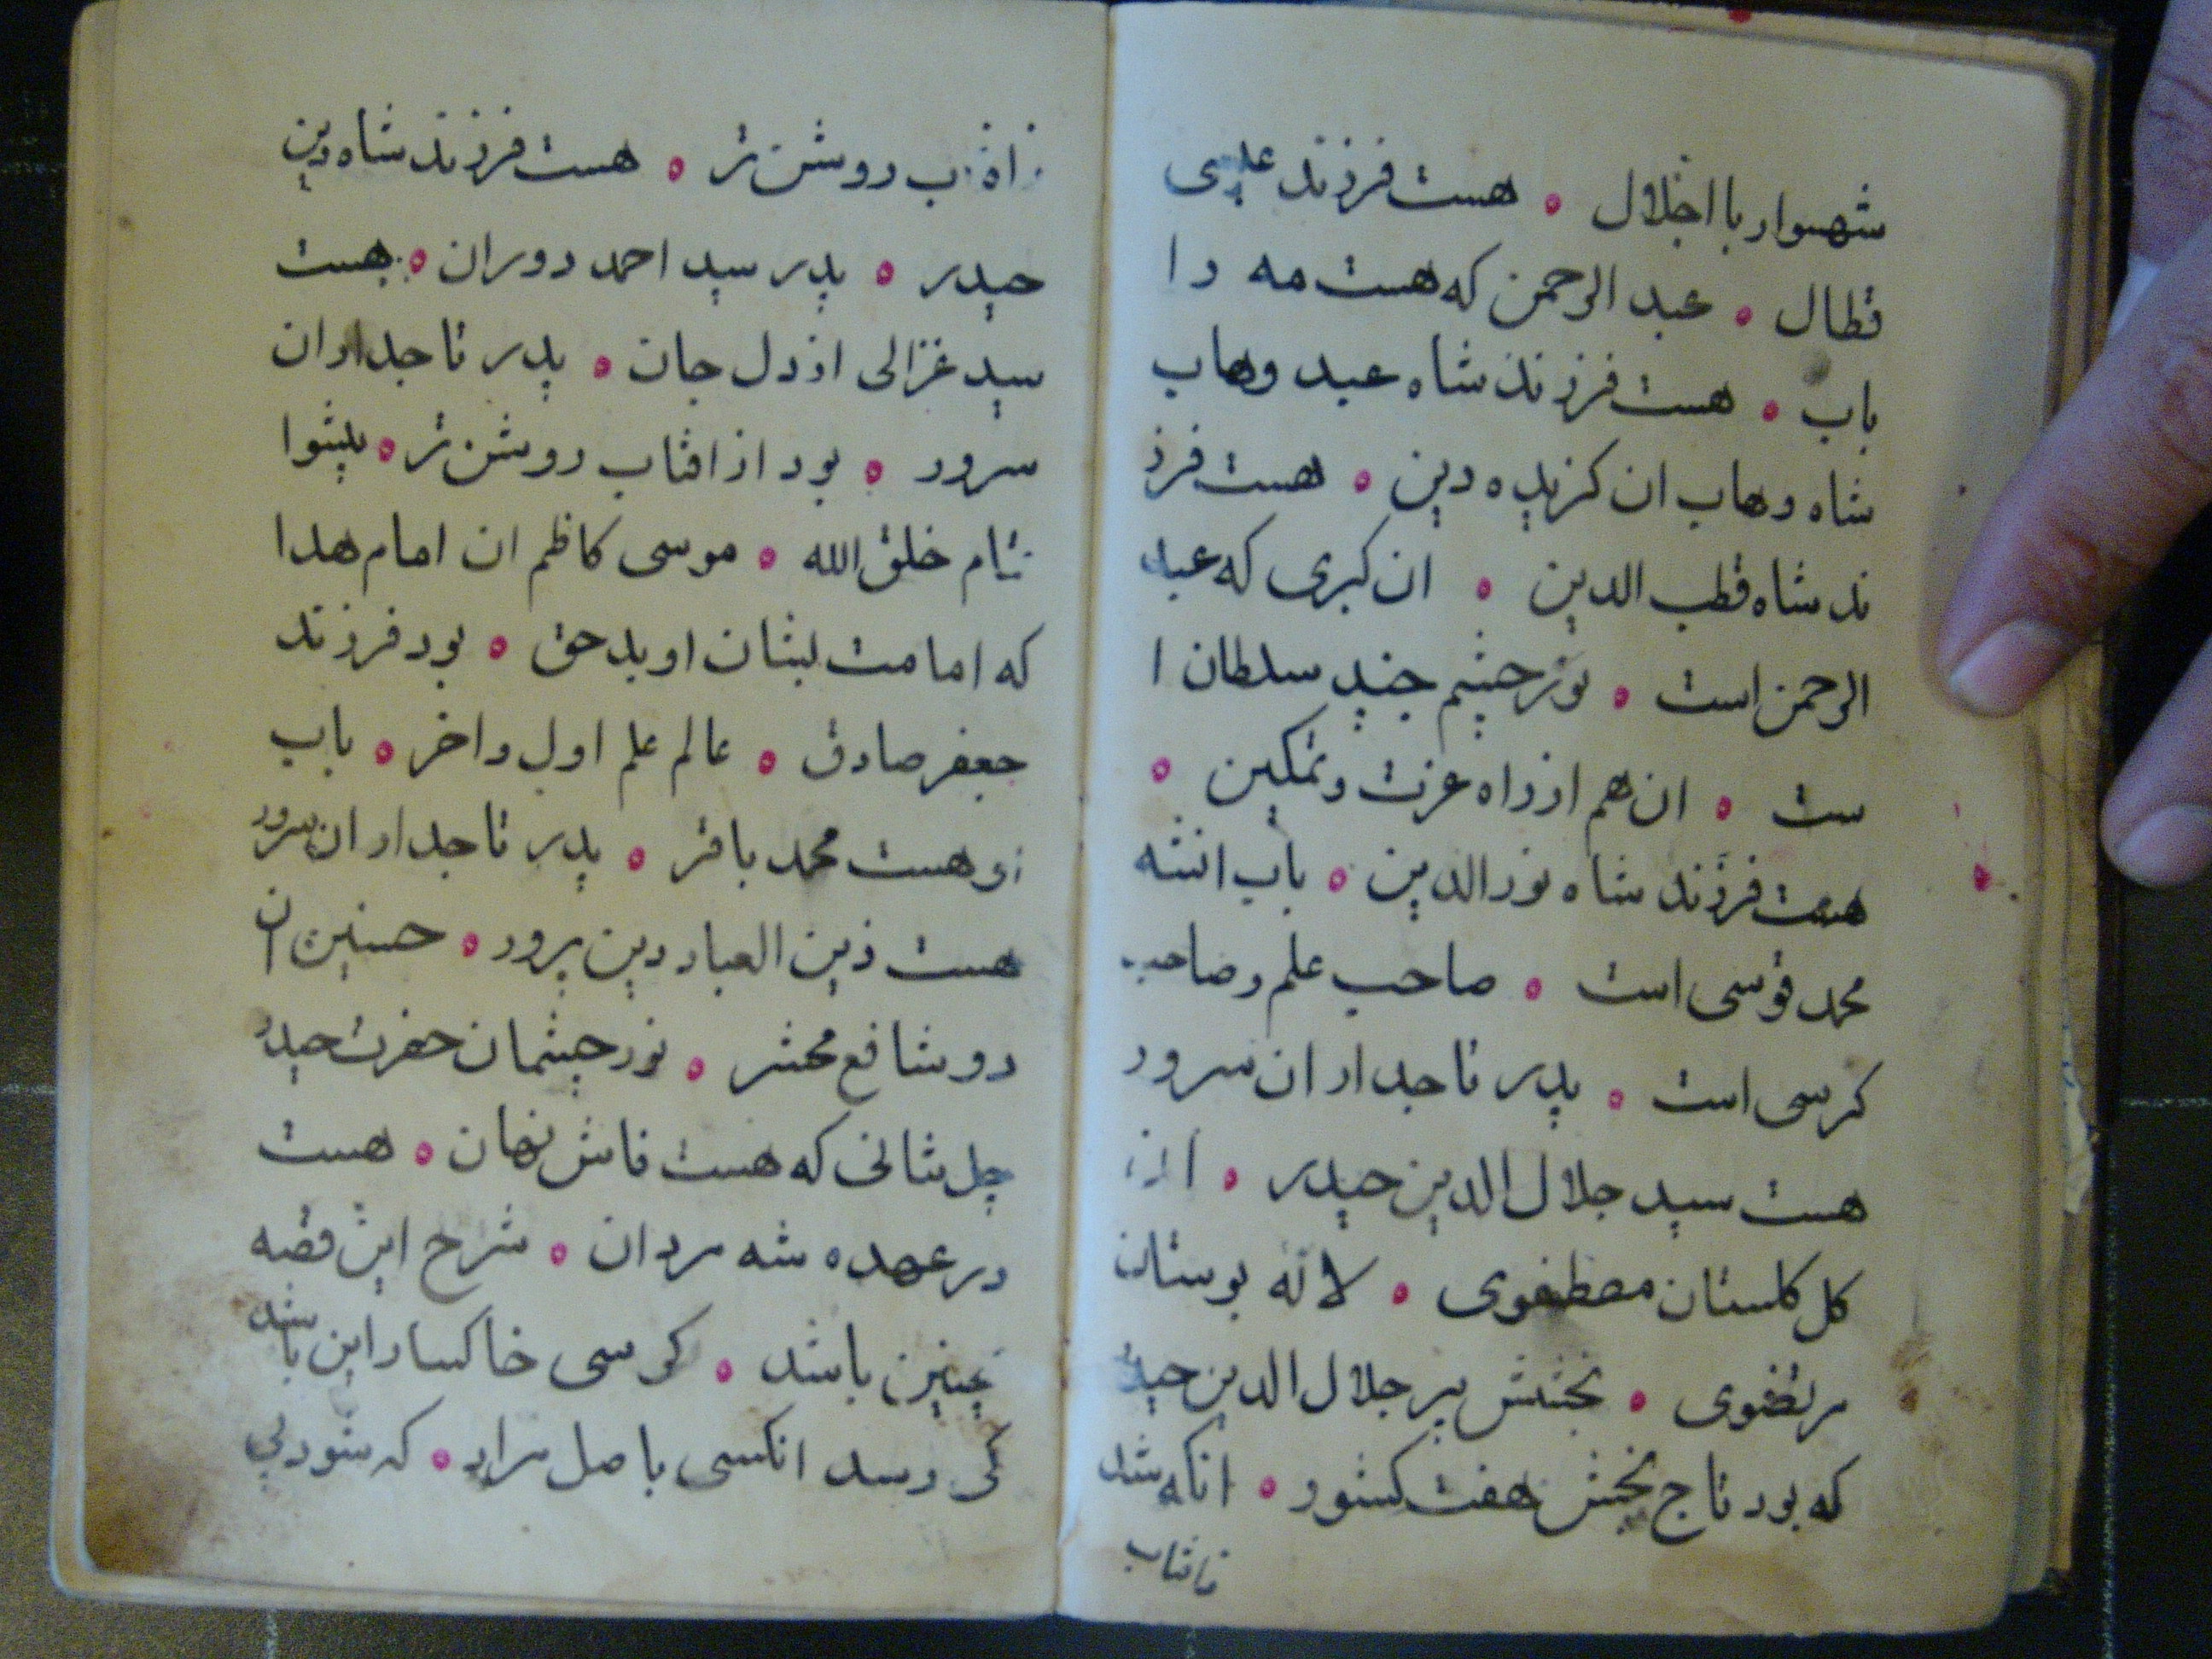 شهسوار با اجلال ه هست فرزند علی
قطال ه عبد الرحمن که هست مه را
باب ه هست فرزند شاه عبد وهاب
شاه وهاب ان کزیده دین ه هست فرز
ند شاه قطب الدین ه ان کبری که عبد
الرحمن است ه نور چشم جنید سلطان ا
ست ه ان هم از راه عزت و تمکین ه
هست فرزند شاه نور الدین ه باب انشه
محمد قوسی است ه صاحب علم و صاحب
کرسی است ه پدر تاجدار ان سرور
هست سید جلال الدین حیدر ه
کل کلستان مصطفوی ه لاله بوستان
مرتضوی ه بخشش پیر جلال الدین حیدر
که بود تاج بخش هفت کشور ه انکه شد
روشن تر ه هست فرزند شاه دین
حیدر ه پدر سید احمد دوران ه هست
سید غزالی از دل جان ه پدر تاجدار ان
سرور ه بود از افتاب روشن تر ه پیشوا
تمام خلق الله ه موسی کاظم ان امام هدا
که امامت بشان او بد حق ه بود فرزند
جعفر صادق ه عالم علم اول و اخر ه باب
او هست محمد باقر ه پدر تاجدار ان سرور
هست زین العباد دین پرور ه حسنین ان
دو شافع محشر ه نور چشمان حضرت حیدر
چل شانی که هست فاش نهان ه هست
در عهده شه مردان ه شرح این قصه
چنین باشد ه کرسی خاکسار این باشد
کی رسد انکسی باصل مراد ه که شود بی